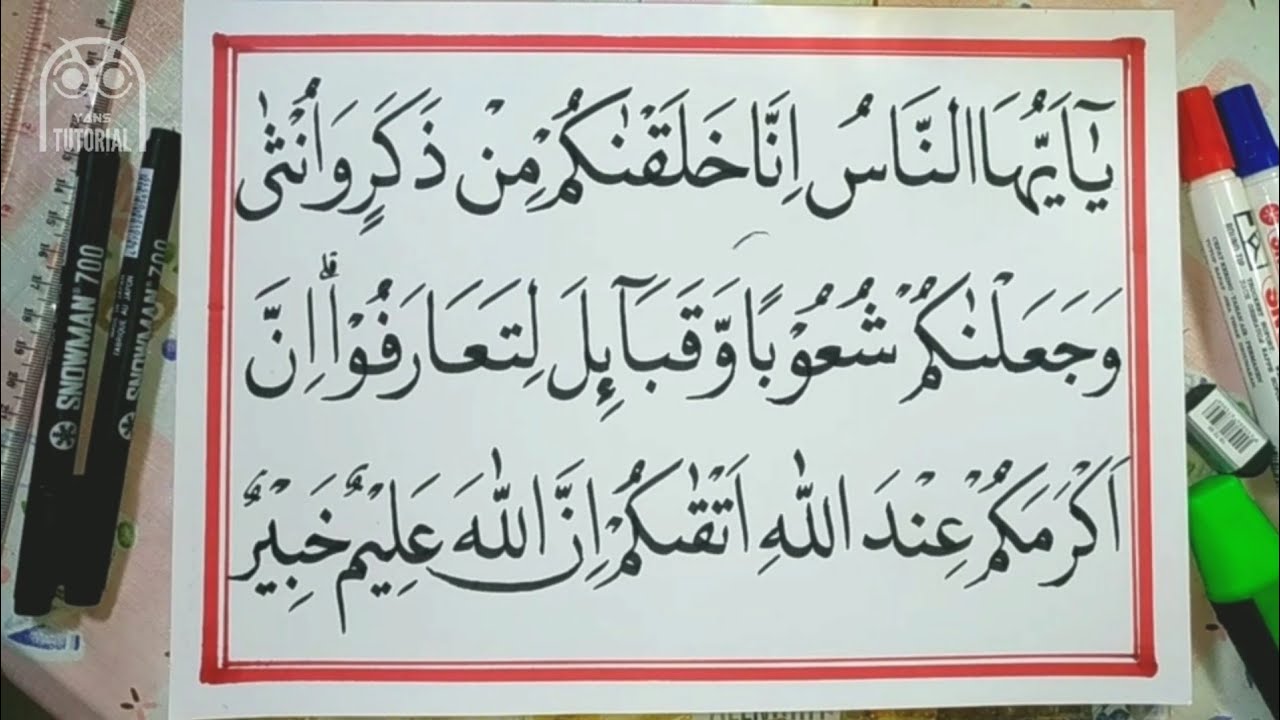 YANS
TUTORIAL
يٰٓاَيُّهَا النَّاسُ اِنَّا خَلَقْنٰكُمْ مِنْ ذَكَرٍ وَاُنْثٰى
وَجَعَلْنٰكُمْ شُعُوْبًا وَّقَبَآىِٕلَ لِتَعَارَفُوْاۗ اِنَّ
اَكْرَمَكُمْ عِنْدَ اللّٰهِ اَتْقٰىكُمْ اِنَّ اللّٰهَ عَلِيْمٌ خَبِيْرٌ
SNOWMAN 700
SNOWMAN 700